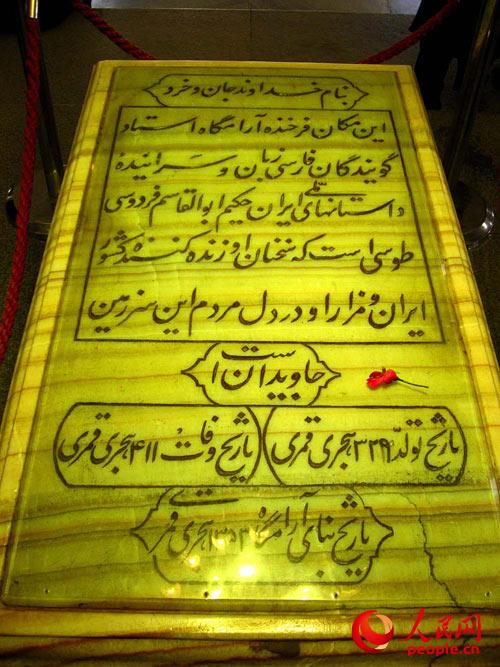 بنام خداوند جان و خرد
این مکان فرخنده آرامگاه استاد
گویندگان فارسی زبان و سراینده
داستانهای ملی ایران حکیم ابوالقاسم فردوسی
طوسی است که سخنان او زنده کننده کشور
ایران و مزار او در دل مردم این سرزمین
جاویدان است
تاریخ تولد ۳۲۹ هجری قمری
تاریخ وفات ۴۱۱ هجری قمری
تاریخ بنای آرامگاه ۱۳۵۳ هجری قمری
人民网
people.cn